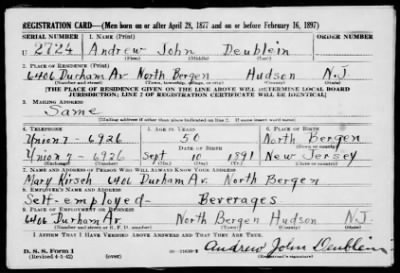 REGISTRATION CARD—(Men born on or after April 28, 1877 and on or before February 16, 1897)
SERIAL NUMBER 1. NAME (Print) ORDER NUMBER
U 2724 Andrew John Deublein
(First) (Middle) (Last)
2. PLACE OF RESIDENCE (Print)
6406 Durham Av North Bergen Hudson N.J
(Number and street) (Town, township, village, or city) (County) (State)
[THE PLACE OF RESIDENCE GIVEN ON THE LINE ABOVE WILL DETERMINE LOCAL BOARD
JURISDICTION; LINE 2 OF REGISTRATION CERTIFICATE WILL BE IDENTICAL]
3. MAILING ADDRESS
Same
(Mailing address if other than place indicated on line 2. If same insert word same)
4. TELEPHONE 5. AGE IN YEARS 6. PLACE OF BIRTH
Union 7-6926 50 North Bergen
DATE OF BIRTH (Town or county)
Union 7-6926 Sept 10 1891 New Jersey
(Exchange) (Number) (Mo.) (Day) (Yr.) (State or country)
7. NAME AND ADDRESS OF PERSON WHO WILL ALWAYS KNOW YOUR ADDRESS
Mary Kirsch 6406 Durham Av. North Bergen
8. EMPLOYER'S NAME AND ADDRESS
Self-employed - Beverages
9. PLACE OF EMPLOYMENT OR BUSINESS
6406 Durham Av North Bergen Hudson N.J.
(Number and street or R. F. D. number) (Town) (County) (State)
I AFFIRM THAT I HAVE VERIFIED ABOVE ANSWERS AND THAT THEY ARE TRUE.
D. S. S. Form 1
(Revised 4-1-42) (over)
Andrew John Deublein
(Registrant's signature)